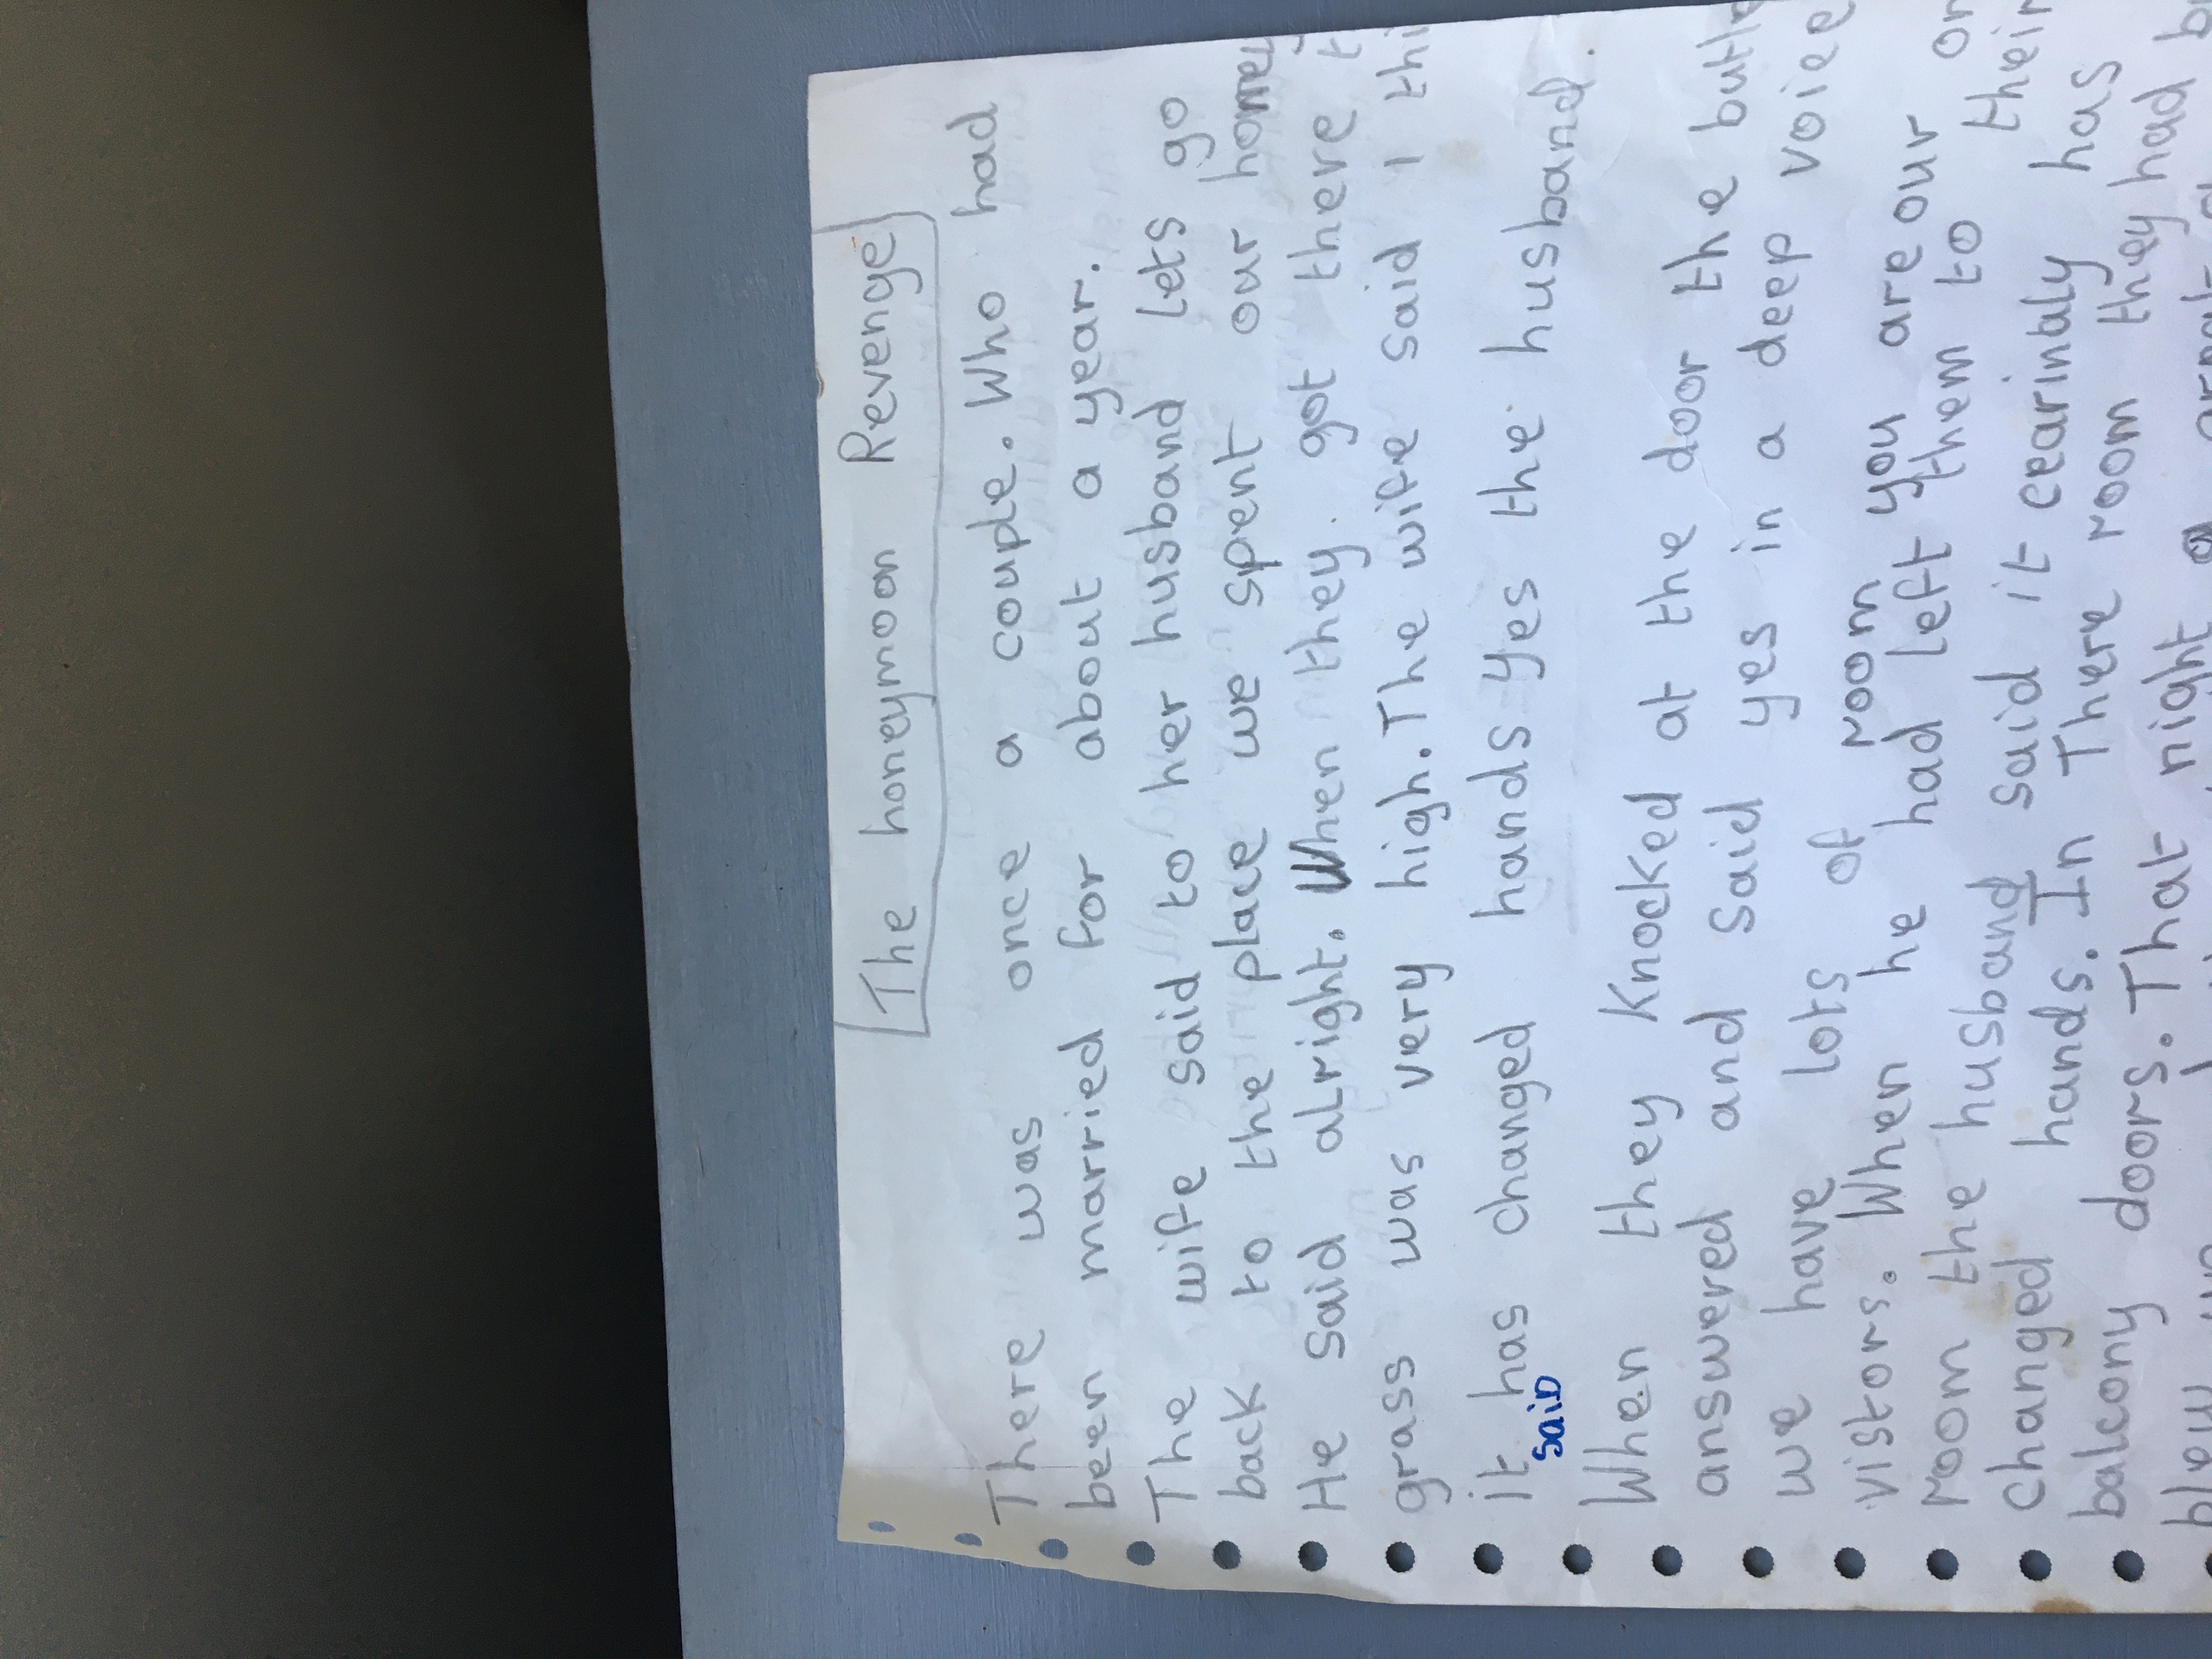 The honeymoon Revenge
There was once a couple. Who had
been married for about a year.
The wife said to her husband lets go
back to the place we spent our
He said alright. When they got there
grass was very high. The wife said I
it has changed hands yes the husband.
said
When they knocked at the door the
answered and said yes in a deep voice
we have lots of room you are our
vistors. When he had left them to their
room the husband said it cearinaly has
changed hands. In There room they had
balcony doors. That night a